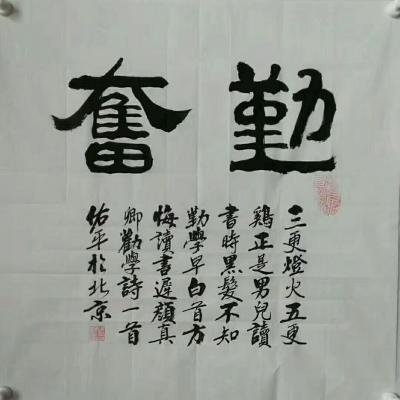 勤奮
三更燈火五更
鷄正是男兒讀
書時黑髮不知
勤學早白首方
悔讀書遲顏真
卿勸學詩一首
佑平於北京